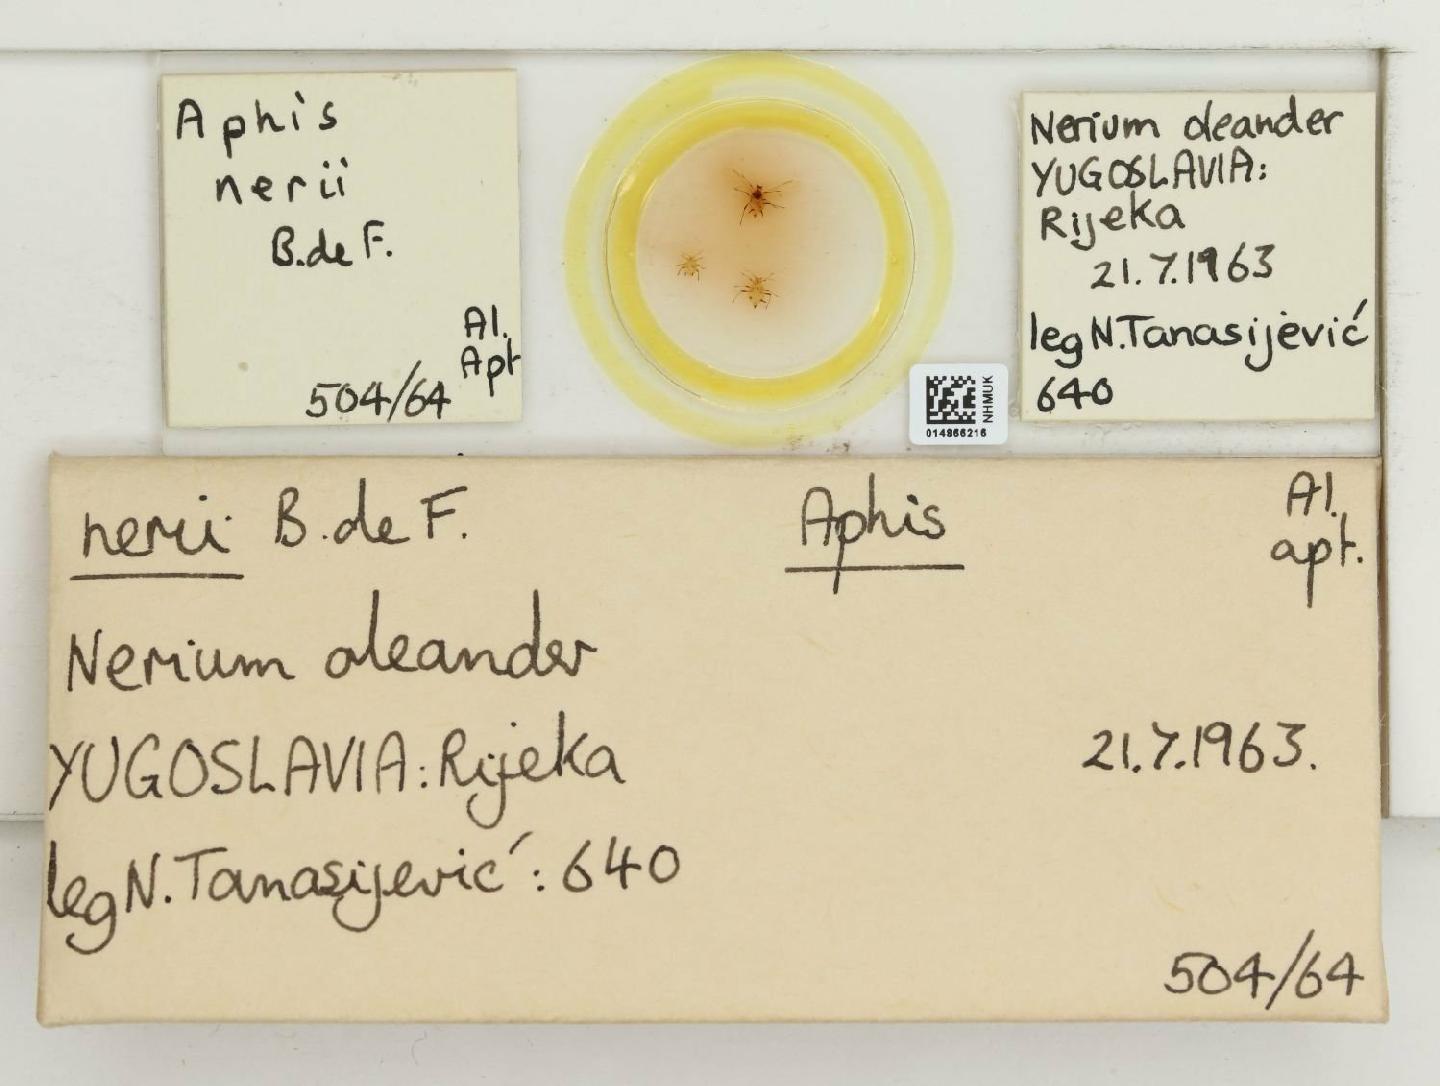 Aphis
nerii
B.de F.
Al.
Apt
504/64
NHMUK
014866216
Nerium oleander
YUGOSLAVIA:
Rijeka
21.7.1963
leg N.Tanasijević
640
nerii B.de F. Aphis Al.
apt.
Nerium oleander
YUGOSLAVIA: Rijeka 21.7.1963.
leg N.Tanasijević: 640
504/64